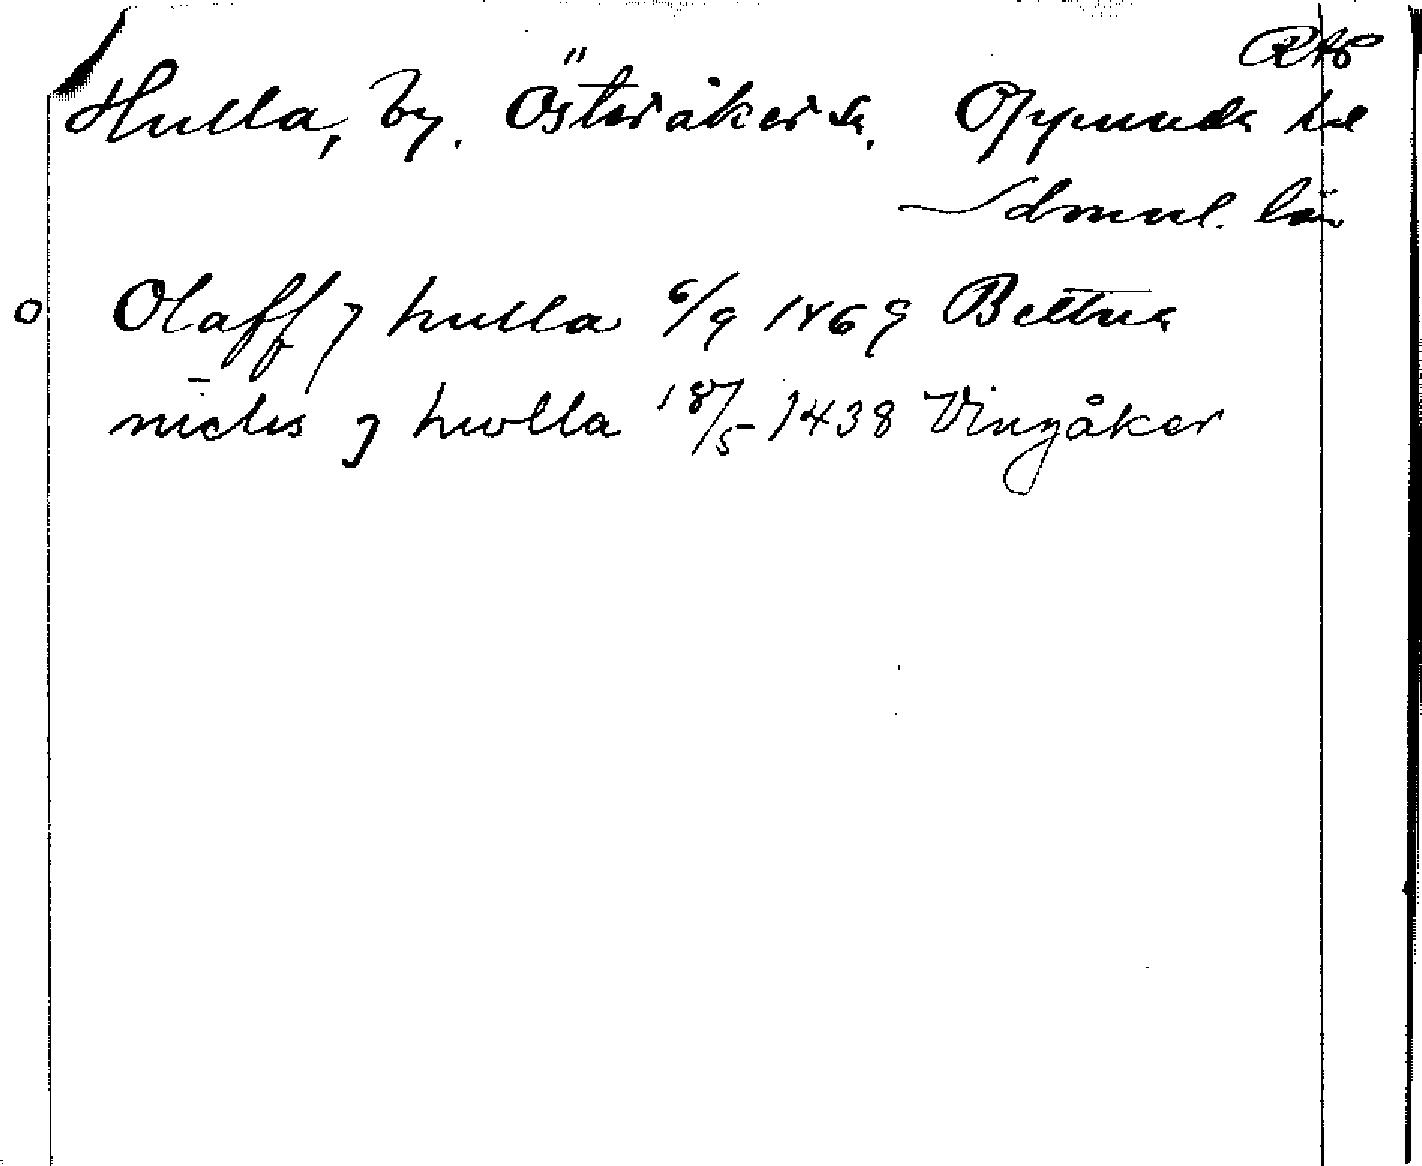 RAP
Hulla, by. Österåker sn. Oppunda hd
Södmnl. län
O Olaff j hulla 6/9 1469 Bettna
niclis j hwlla 18/5 1438 Vingåker